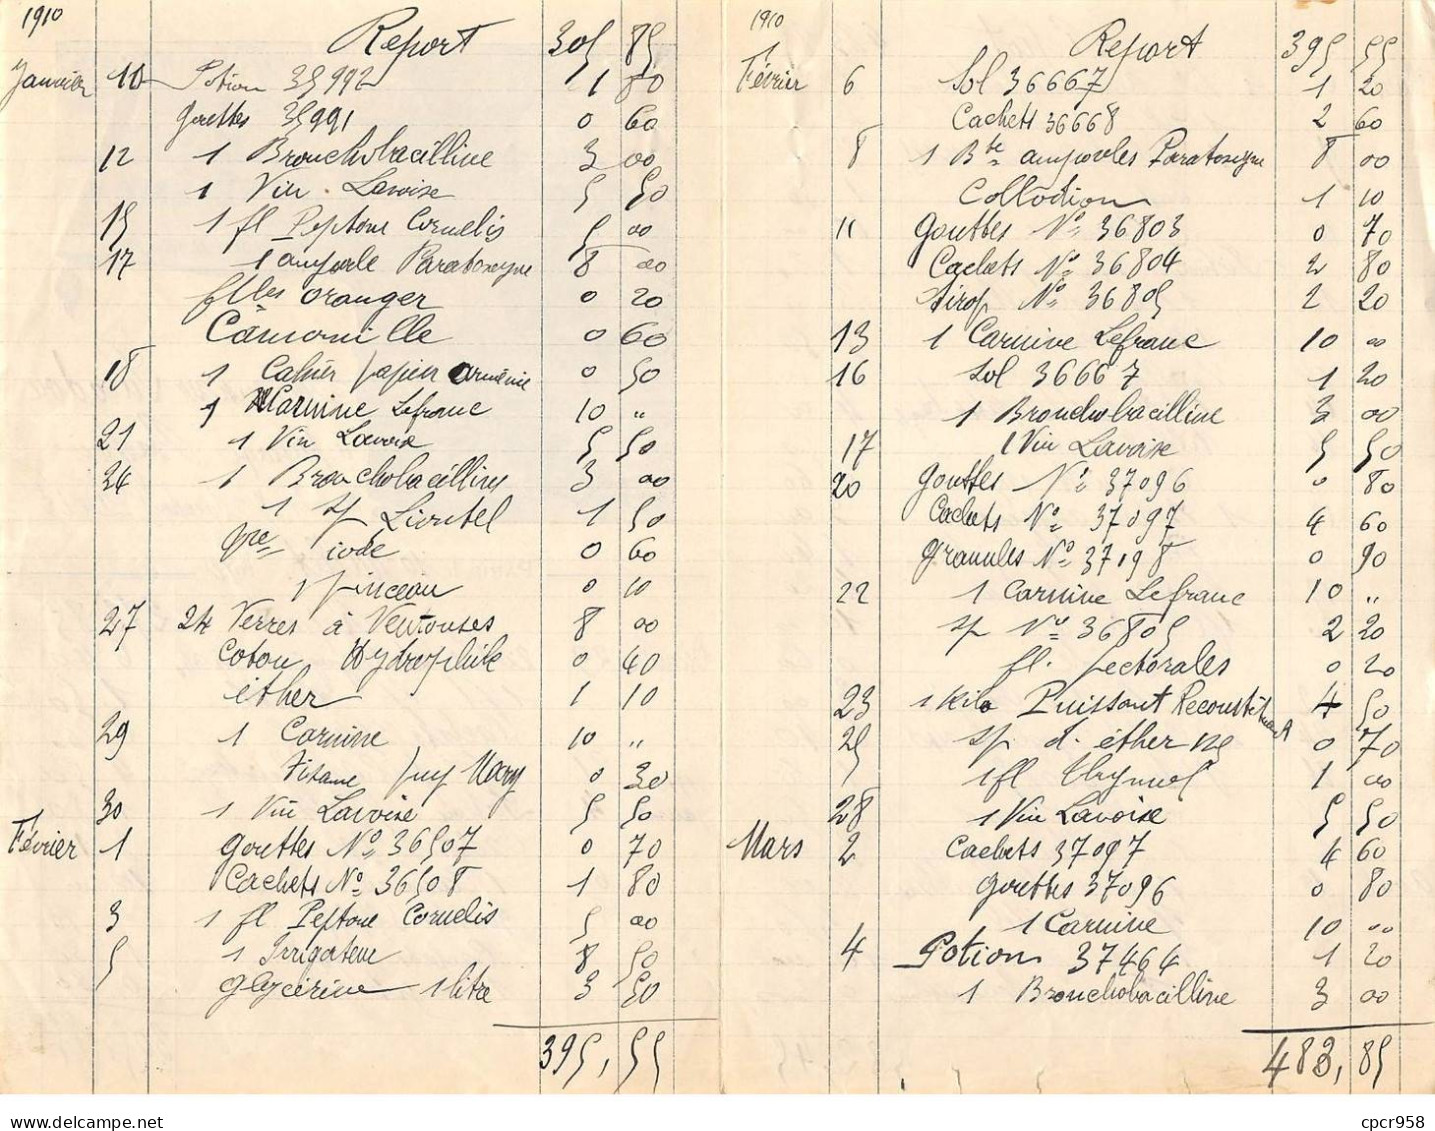 1910
Report 305 85
Janvier 10 Potion 35992 1 80
Gouttes 35991 0 60
12 1 Bronchobacilline 3 00
1 Vin Lavoixe 5 50
15 1 fl Peptone Cornelis 5 00
17 1 ampoule Paratoxyne 8 00
flles oranger 0 20
Camomille 0 60
18 1 Cahier papier arménie 0 50
1 Carnine Lefranc 10 "
21 1 Vin Lavoixe 5 50
24 1 Bronchobacilline 3 00
1 sp Lioutel 1 50
iode 0 60
1 pinceau 0 10
27 24 Verres à Ventouses 8 00
Coton Hydrophile 0 40
éther 1 10
29 1 Carnine 10 "
Tisane 0 30
30 1 Vin Lavoixe 5 50
Février 1 Gouttes No 36507 0 70
Cachets No 36508 1 80
3 1 fl Peptone Cornelis 5 00
5 1 Irrigateur 8 50
Glycérine 1 litre 3 50
395,55
1910
Report 395 55
Février 6 Sol 36667 1 20
Cachets 36668 2 60
8 1 Bte ampoules Paratoxyne 8 00
Collodion 1 10
11 Gouttes No 36803 0 70
Cachets No 36804 2 80
Sirop No 36805 2 20
13 1 Carnine Lefranc 10 00
16 Sol 36667 1 20
1 Bronchobacilline 3 00
17 1 Vin Lavoixe 5 50
20 Gouttes No 37096 0 80
Cachets No 37097 4 60
Granules No 37198 0 90
22 1 Carnine Lefranc 10 "
sp No 36805 2 20
fl. pectorales 0 20
23 1 Kilo Puissant Reconstituant 4 50
25 sp d. éther 0 70
1 fl Thymol 1 00
28 1 Vin Lavoixe 5 50
Mars 2 Cachets 37097 4 60
Gouttes 37096 0 80
1 Carnine 10 00
4 Potion 37464 1 20
1 Bronchobacilline 3 00
483,85
delcampe.net
cpcr958